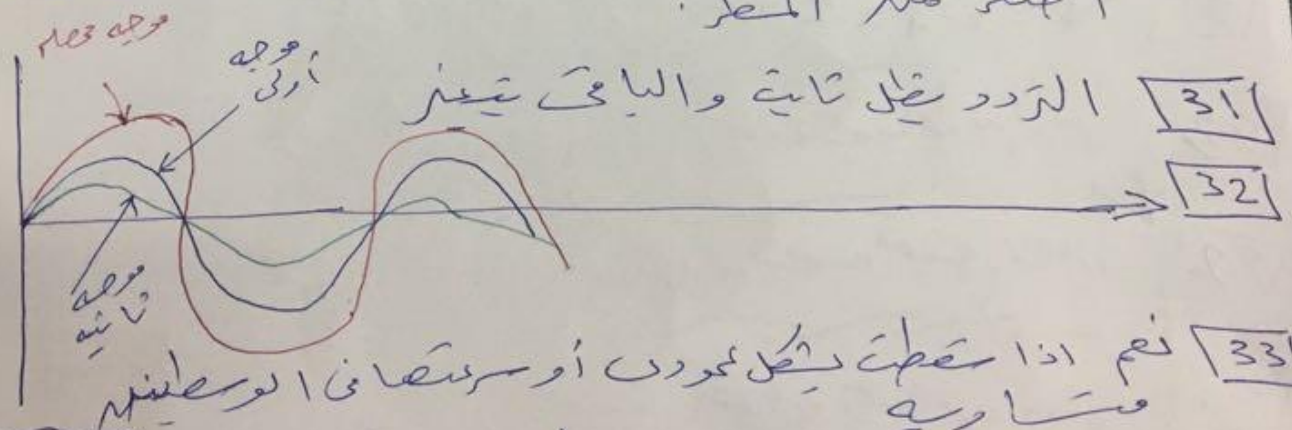 المسطر.
موجه محصله
موجه
أولى
31 التردد يظل ثابت والباقى يتغير
32
موجه
ثانيه
33 نعم اذا سقطت بشكل عمودى أو سرعتها فى الوسطين
متساويه